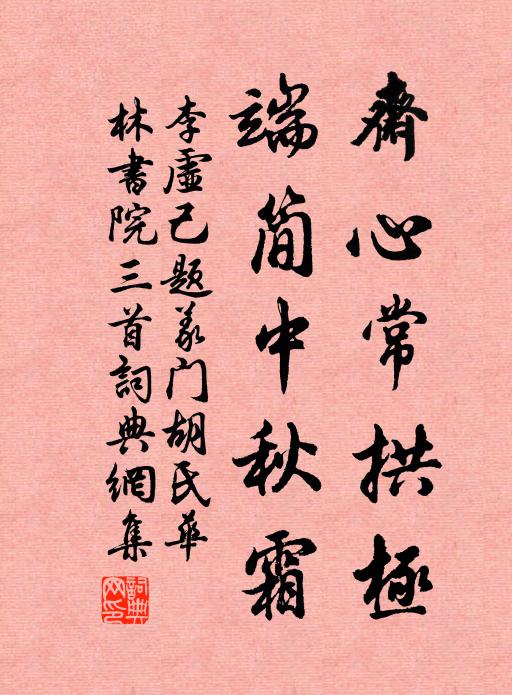 齋心常拱極
端简中秋霜
李虛己题義门胡氏華
林書院三首詞典網集
詞典網印